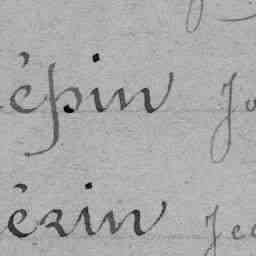 épin Jo
érin Jea